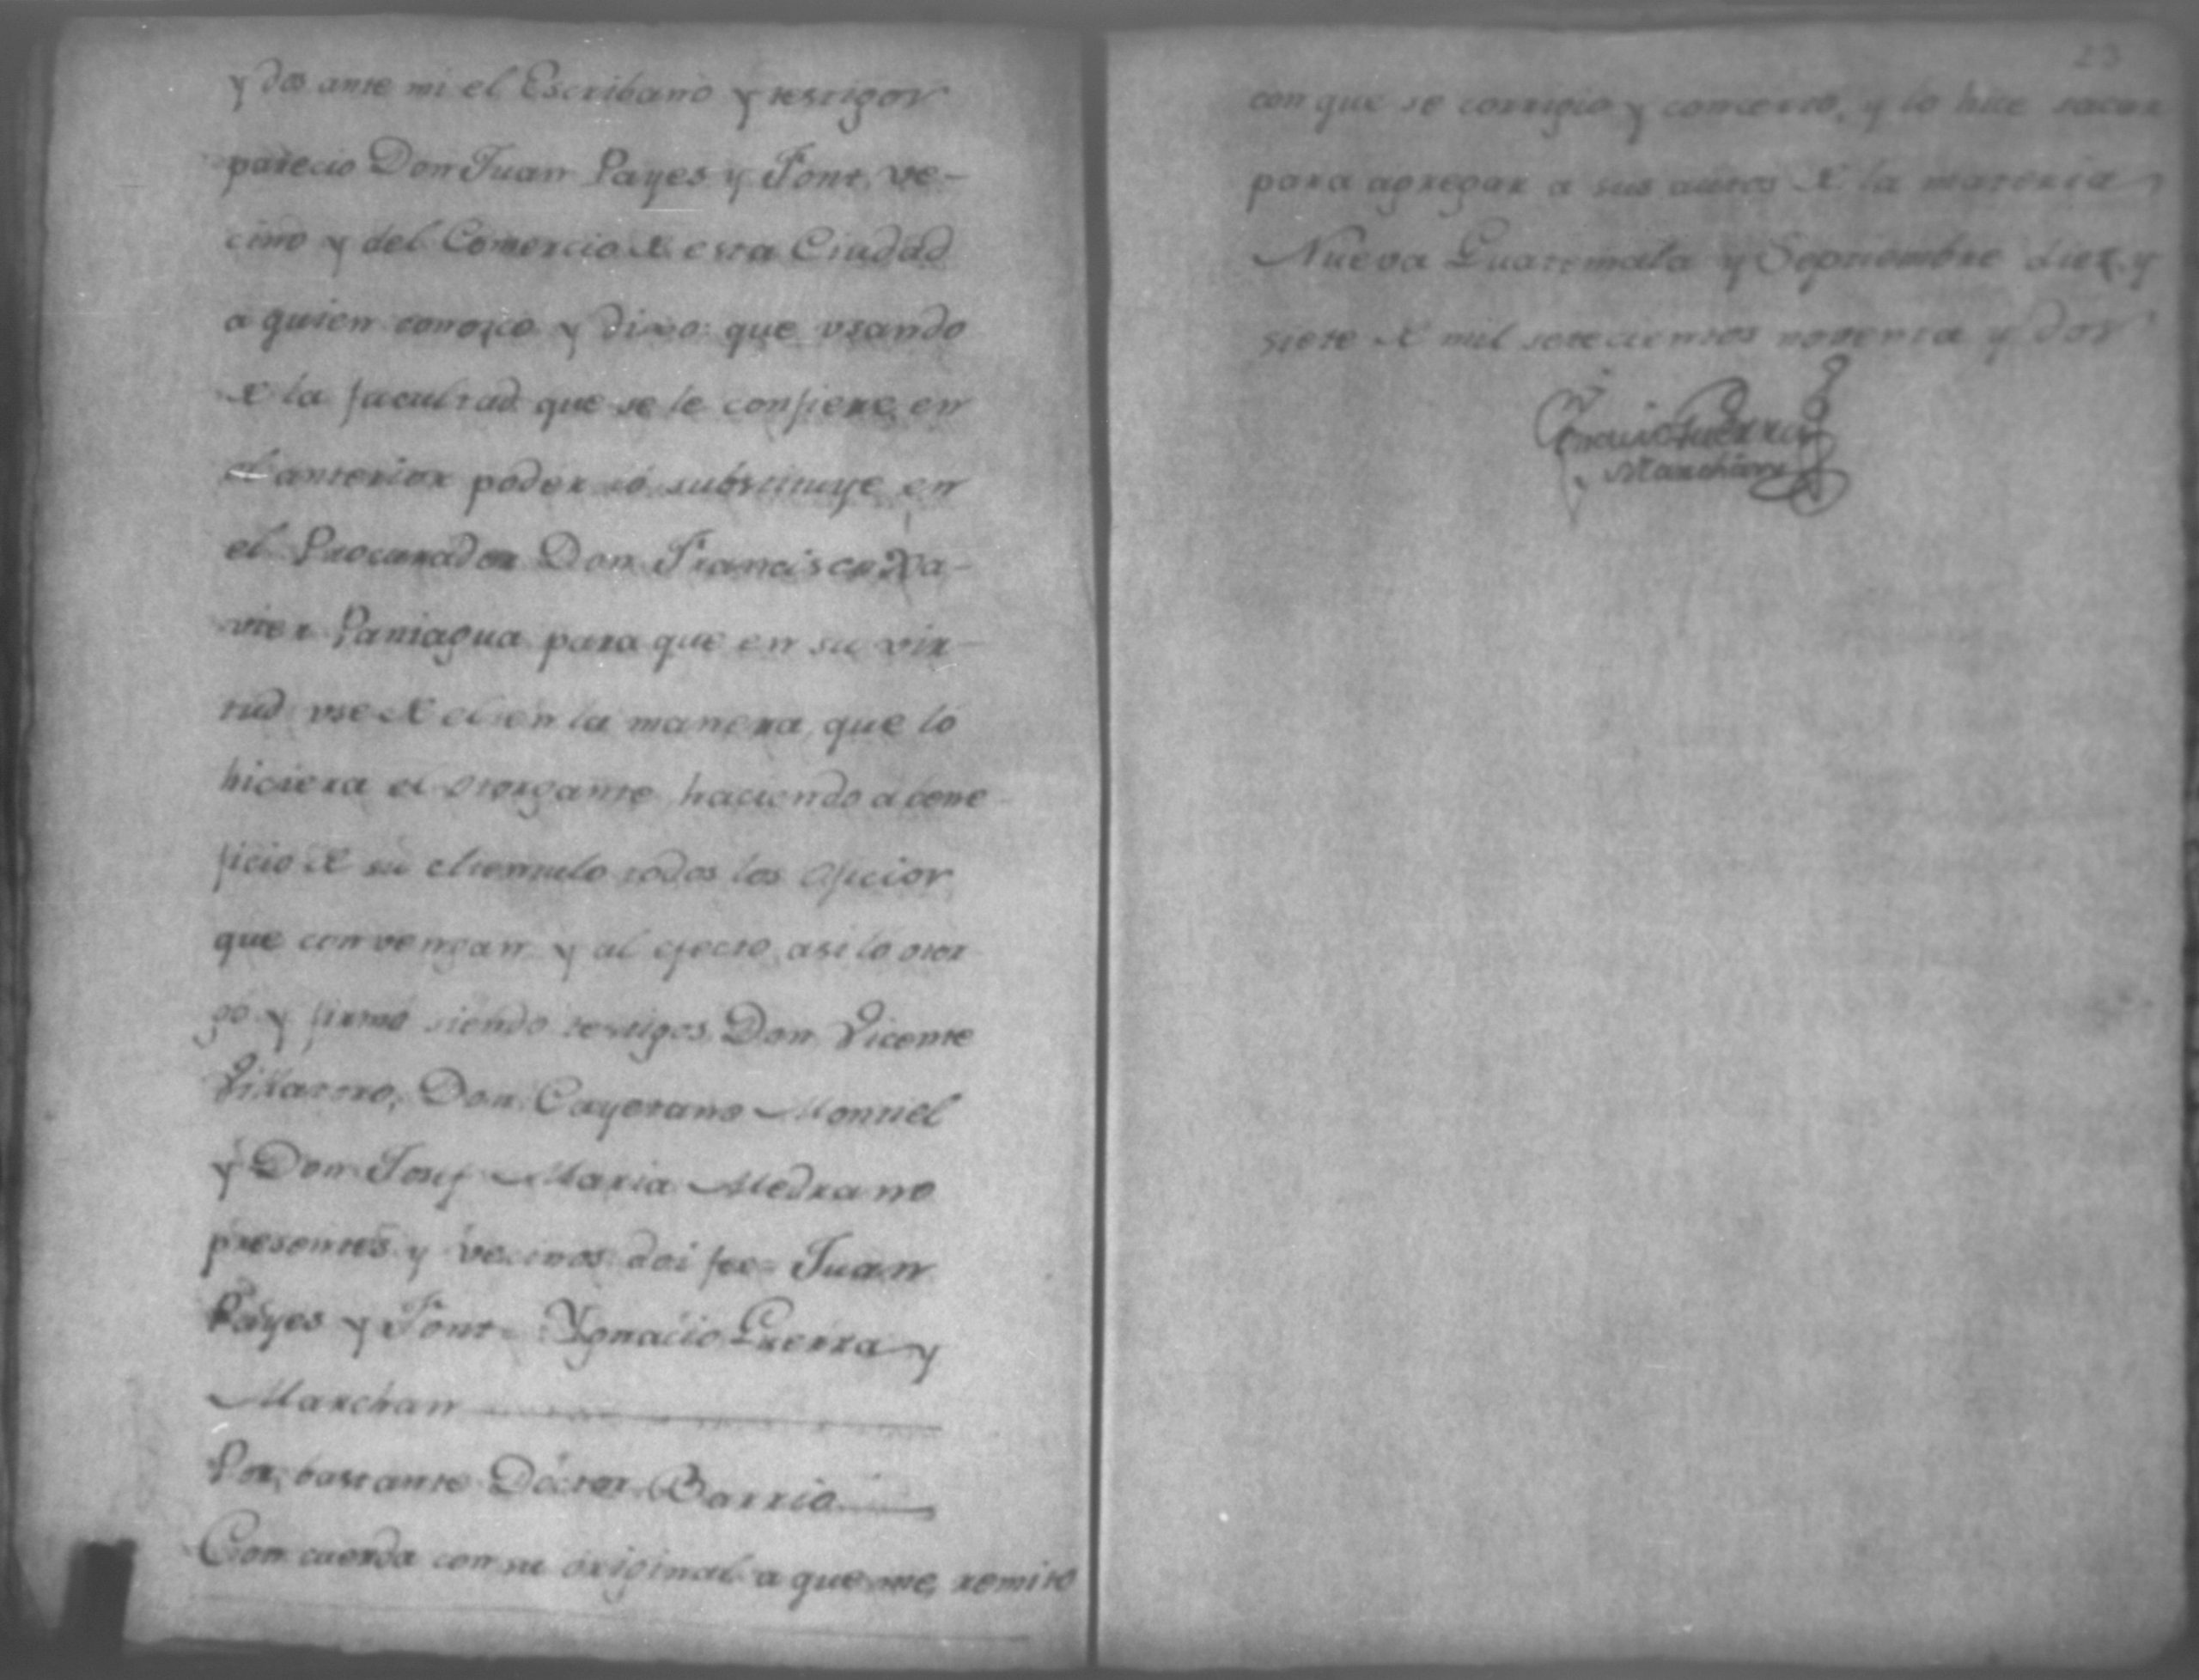 y dos ante mi el Escribano y testigos
parecio Don Juan Payes y Font, ve-
cino y del Comercio de esta Ciudad
a quien conozco y dixo: que usando
de la facultad que se le confiere en
el anterior poder lo substituye en
el Procurador Don Francisco Xa-
vier Paniagua para que en su vir-
tud use de el en la manera que lo
hiciera el otorgante haciendo a bene-
ficio de su todos los oficios
que convengan y al efecto asi lo otor-
gó y firmó siendo testigos Don Vicente
Villatoro, Don Cayetano Montiel
y Don Josef Maria Medrano
presentes y vecinos doi fee= Juan
Payes y Font= Ygnacio Guerra y
Marchan
Por bastante Doctor Barrio
Concuerda con su original a que me remito
23
con que se corrigio y concertó, y lo hice sacar
para agregar a sus autos de la materia
Nueva Guatemala y Septiembre diez y
siete de mil setecientos noventa y dos
Ignacio Guerra y
Marchan